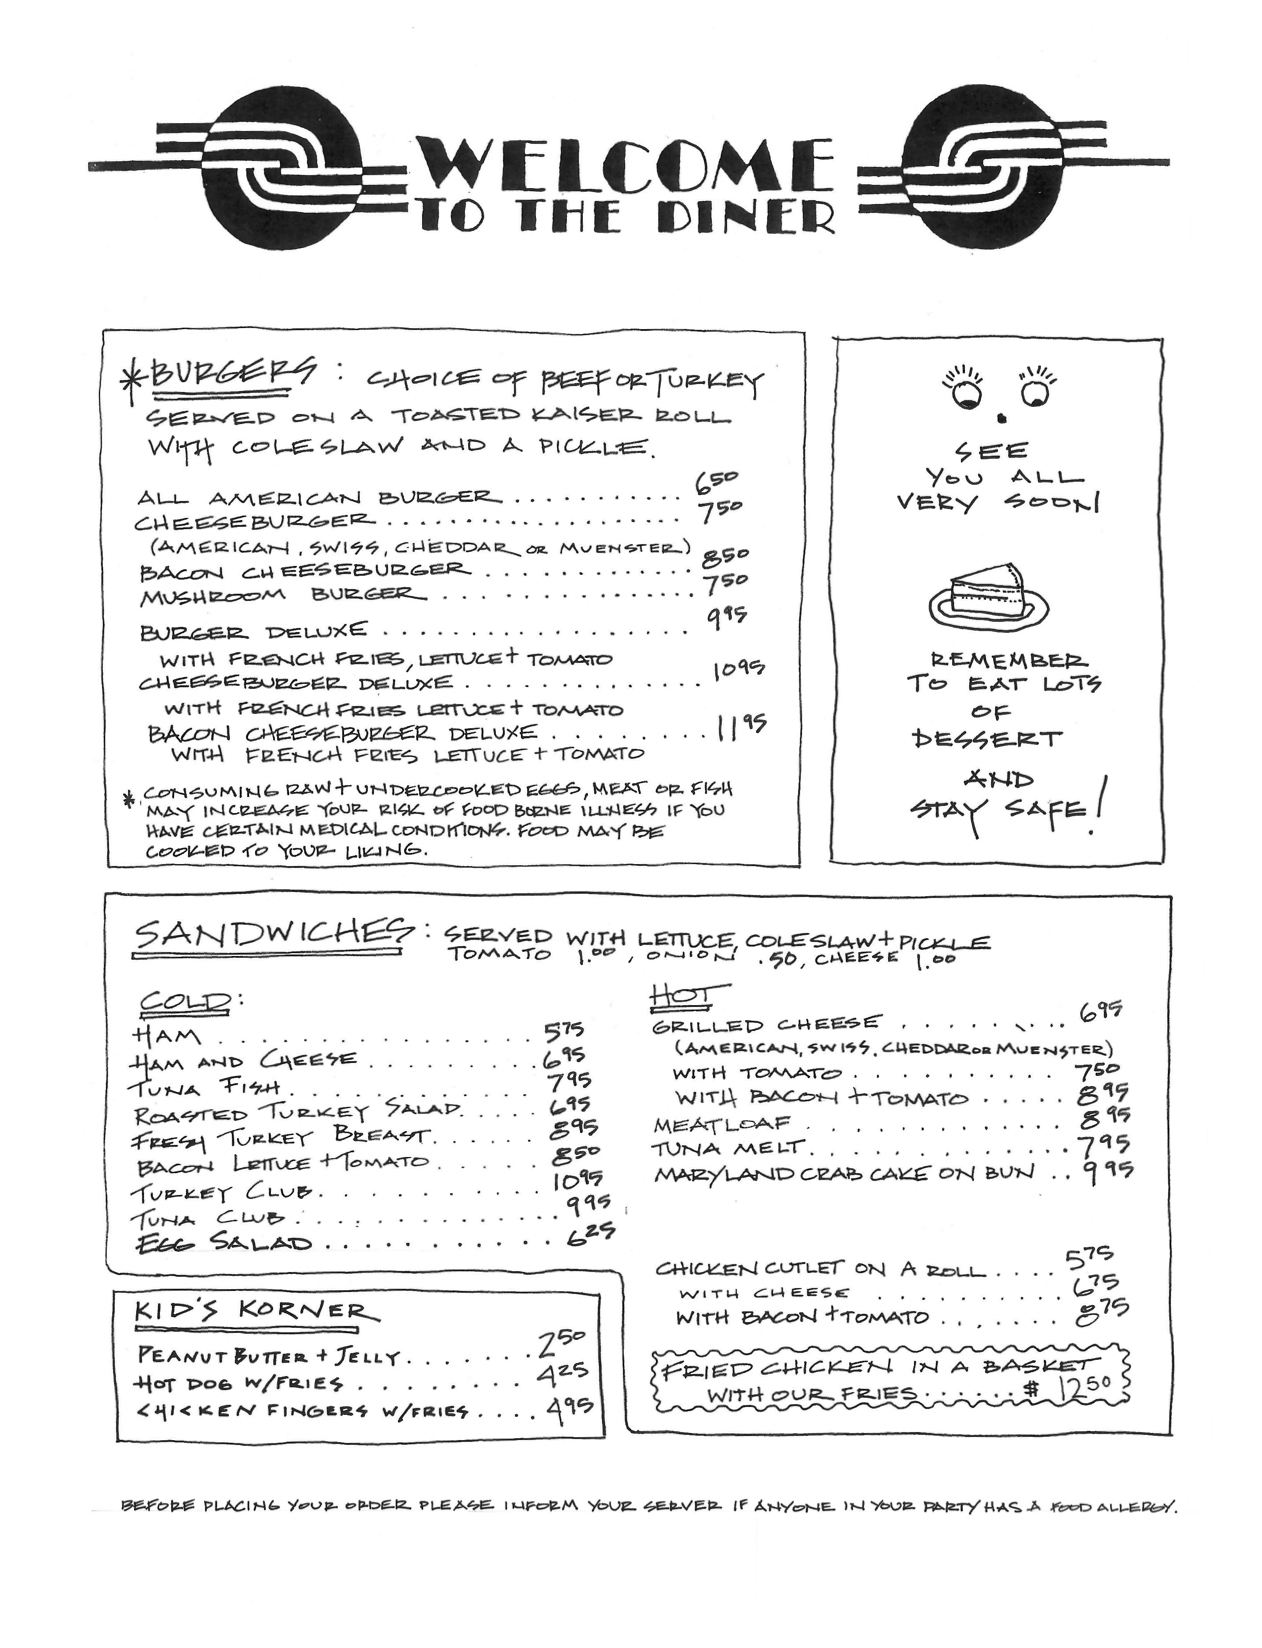 WELCOME
TO THE DINER
*BURGERS: CHOICE OF BEEF OR TURKEY
SERVED ON A TOASTED KAISER ROLL
WITH COLESLAW AND A PICKLE.
ALL AMERICAN BURGER . . . . . . . . . . . 6 50
CHEESEBURGER . . . . . . . . . . . . . . . . . . . 7 50
(AMERICAN, SWISS, CHEDDAR OR MUENSTER)
BACON CHEESEBURGER . . . . . . . . . . . . . 8 50
MUSHROOM BURGER . . . . . . . . . . . . . . . . 7 50
BURGER DELUXE . . . . . . . . . . . . . . . . . . 9 95
WITH FRENCH FRIES, LETTUCE + TOMATO
CHEESEBURGER DELUXE . . . . . . . . . . . . . . 10 95
WITH FRENCH FRIES LETTUCE + TOMATO
BACON CHEESEBURGER DELUXE . . . . . . . . . 11 95
WITH FRENCH FRIES LETTUCE + TOMATO
* CONSUMING RAW + UNDERCOOKED EGGS, MEAT OR FISH
MAY INCREASE YOUR RISK OF FOOD BORNE ILLNESS IF YOU
HAVE CERTAIN MEDICAL CONDITIONS. FOOD MAY BE
COOKED TO YOUR LIKING.
SEE
YOU ALL
VERY SOON!
REMEMBER
TO EAT LOTS
OF
DESSERT
AND
STAY SAFE!
SANDWICHES: SERVED WITH LETTUCE, COLESLAW + PICKLE
TOMATO 1.00, ONION .50, CHEESE 1.00
COLD:
HAM . . . . . . . . . . . . . . . . . 5 75
HAM AND CHEESE . . . . . . . . . 6 95
TUNA FISH . . . . . . . . . . . . . 7 95
ROASTED TURKEY SALAD. . . . . . 6 95
FRESH TURKEY BREAST. . . . . . 8 95
BACON LETTUCE + TOMATO . . . . . . 8 50
TURKEY CLUB. . . . . . . . . . . . 10 95
TUNA CLUB . . . . . . . . . . . . . . 9 95
EGG SALAD . . . . . . . . . . . 6 25
HOT
GRILLED CHEESE . . . . . . . . . 6 95
(AMERICAN, SWISS, CHEDDAR OR MUENSTER)
WITH TOMATO . . . . . . . . . . 7 50
WITH BACON + TOMATO . . . . . 8 95
MEATLOAF . . . . . . . . . . . . . 8 95
TUNA MELT . . . . . . . . . . . . . 7 95
MARYLAND CRAB CAKE ON BUN . . 9 95
CHICKEN CUTLET ON A ROLL . . . . 5 75
WITH CHEESE . . . . . . . . . . 6 75
WITH BACON + TOMATO . . . . . . 8 75
FRIED CHICKEN IN A BASKET
WITH OUR FRIES . . . . . . $ 12 50
KID'S KORNER
PEANUT BUTTER + JELLY . . . . . . . 2 50
HOT DOG W/FRIES . . . . . . . . . 4 25
CHICKEN FINGERS W/FRIES . . . . 4 95
BEFORE PLACING YOUR ORDER PLEASE INFORM YOUR SERVER IF ANYONE IN YOUR PARTY HAS A FOOD ALLERGY.